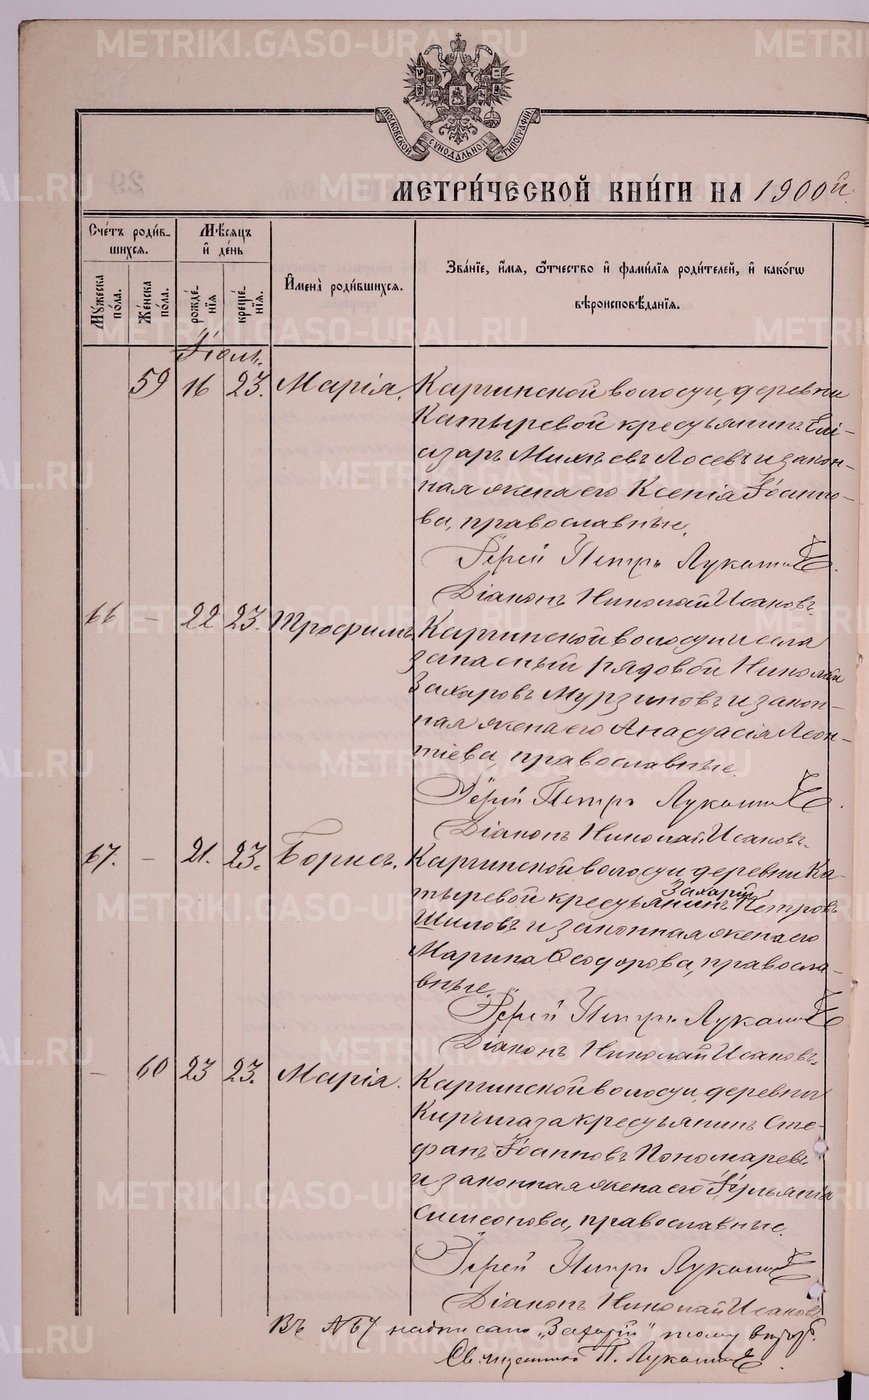 METRIKI.GASO-URAL.RU
МОСКОВСКОЙ СѴНОДАЛЬНОЙ ТИПОГРАФІИ
МЕТРИ́ЧЕСКОЙ КНИ́ГИ НА 1900й.
Сче́тъ роди́в-
шихся.
Мѣ́сяцъ
и҆ де́нь
Му́жеска по́ла.
Же́нска по́ла.
рожде́-
нїѧ
креще́-
нїѧ.
И҆мена̀ роди́вшихся.
Зва́нїе, и҆́мѧ, ѻ҆́тчество и҆ фами́лїѧ роди́телей, и҆ како́гѡ
вѣроисповѣ́данїѧ.
Іюль.
59 16 23. Марія. Каргинской волости, деревни
Катыревой крестьянинъ Елі-
азаръ Лосевъ и закон-
ная жена его Ксенія Іоанно-
ва, православные.
Іерей Петръ
Діаконъ Николай Исаковъ.
66 – 22 23. Трофимъ Каргинской волости и села
запасный рядовой Николай
Захаровъ Мурзиновъ и закон-
ная жена его Анастасія Леон-
тіева, православные.
Іерей Петръ
Діаконъ Николай Исаковъ.
67. – 21. 23. Борисъ. Каргинской волости деревни Ка-
тыревой крестьянинъ Захарій Петровъ
Шиловъ и законная жена его
Марина Ѳеодорова, правосла-
вные.
Іерей Петръ
Діаконъ Николай Исаковъ.
– 60 23 23. Марія. Каргинской волости, деревни
крестьянинъ Сте-
фанъ Іоанновъ Пономаревъ
и законная жена его Іульянія
Симеонова, православные.
Іерей Петръ
Діаконъ Николай Исаковъ
Въ №67 надписано „Захарій" тому
Священникъ П.